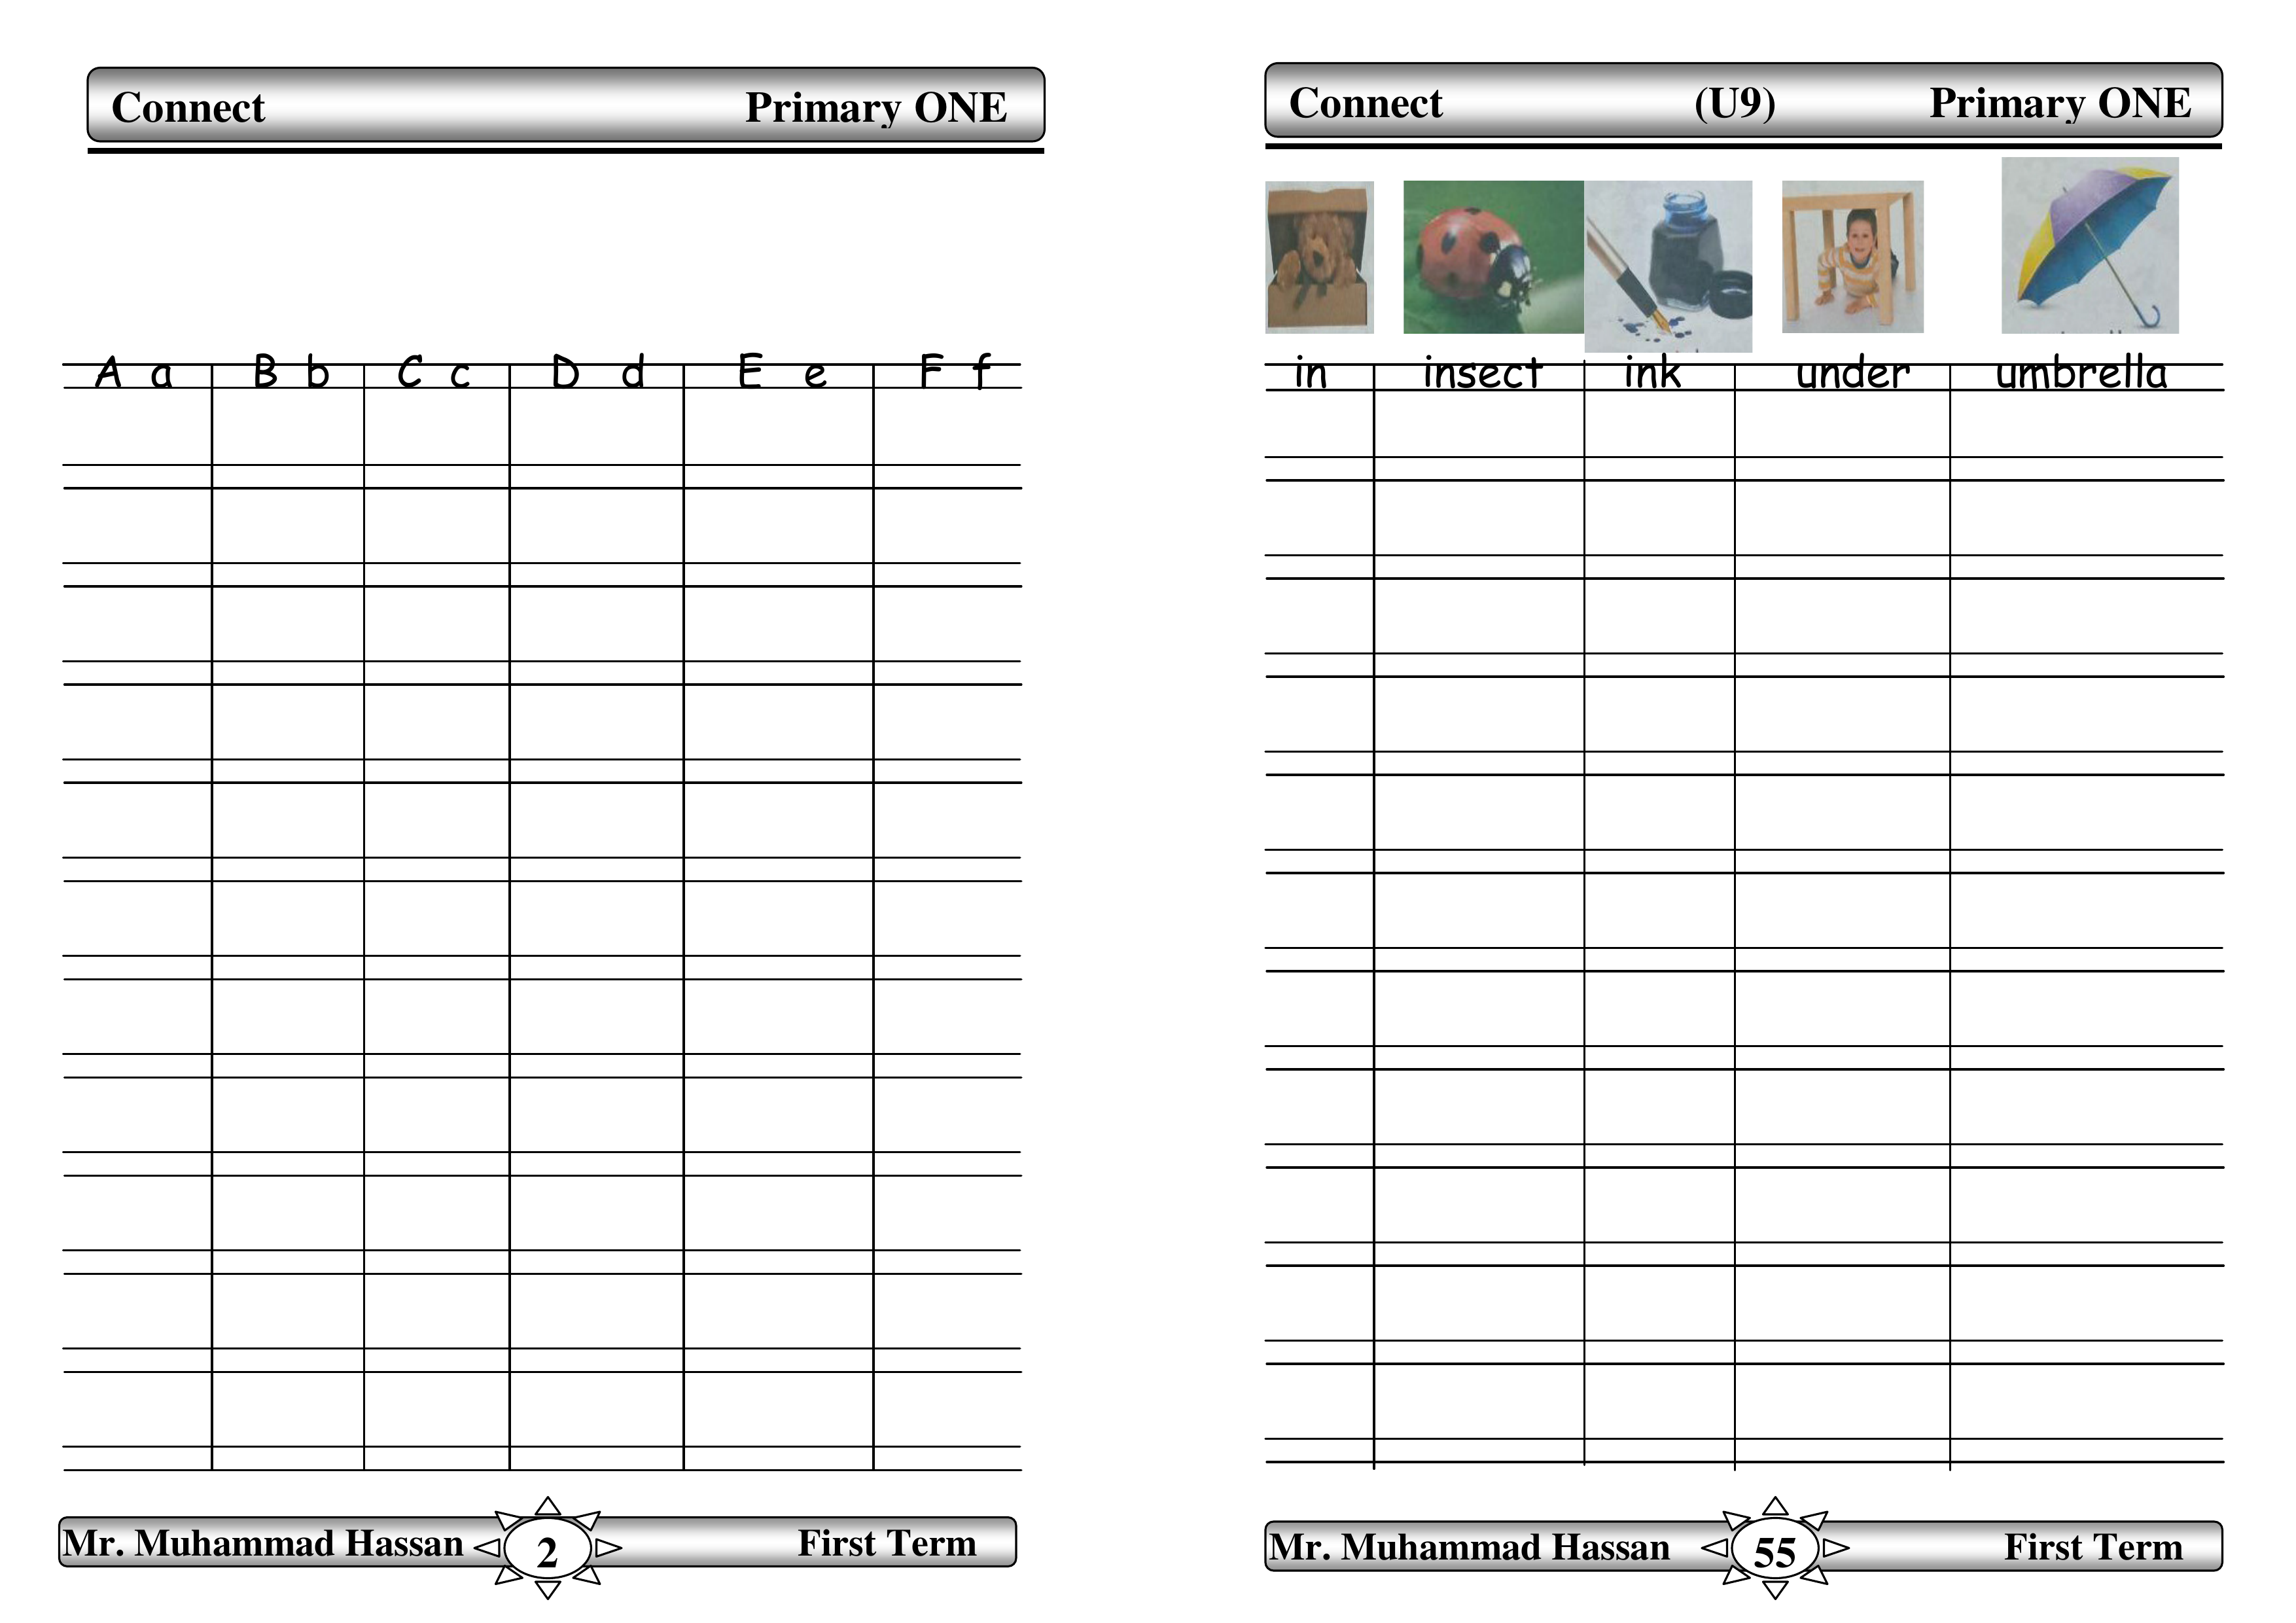 Connect Primary ONE
A a B b C c D d E e F f
Mr. Muhammad Hassan 2 First Term
Connect (U9) Primary ONE
in insect ink under umbrella
Mr. Muhammad Hassan 55 First Term